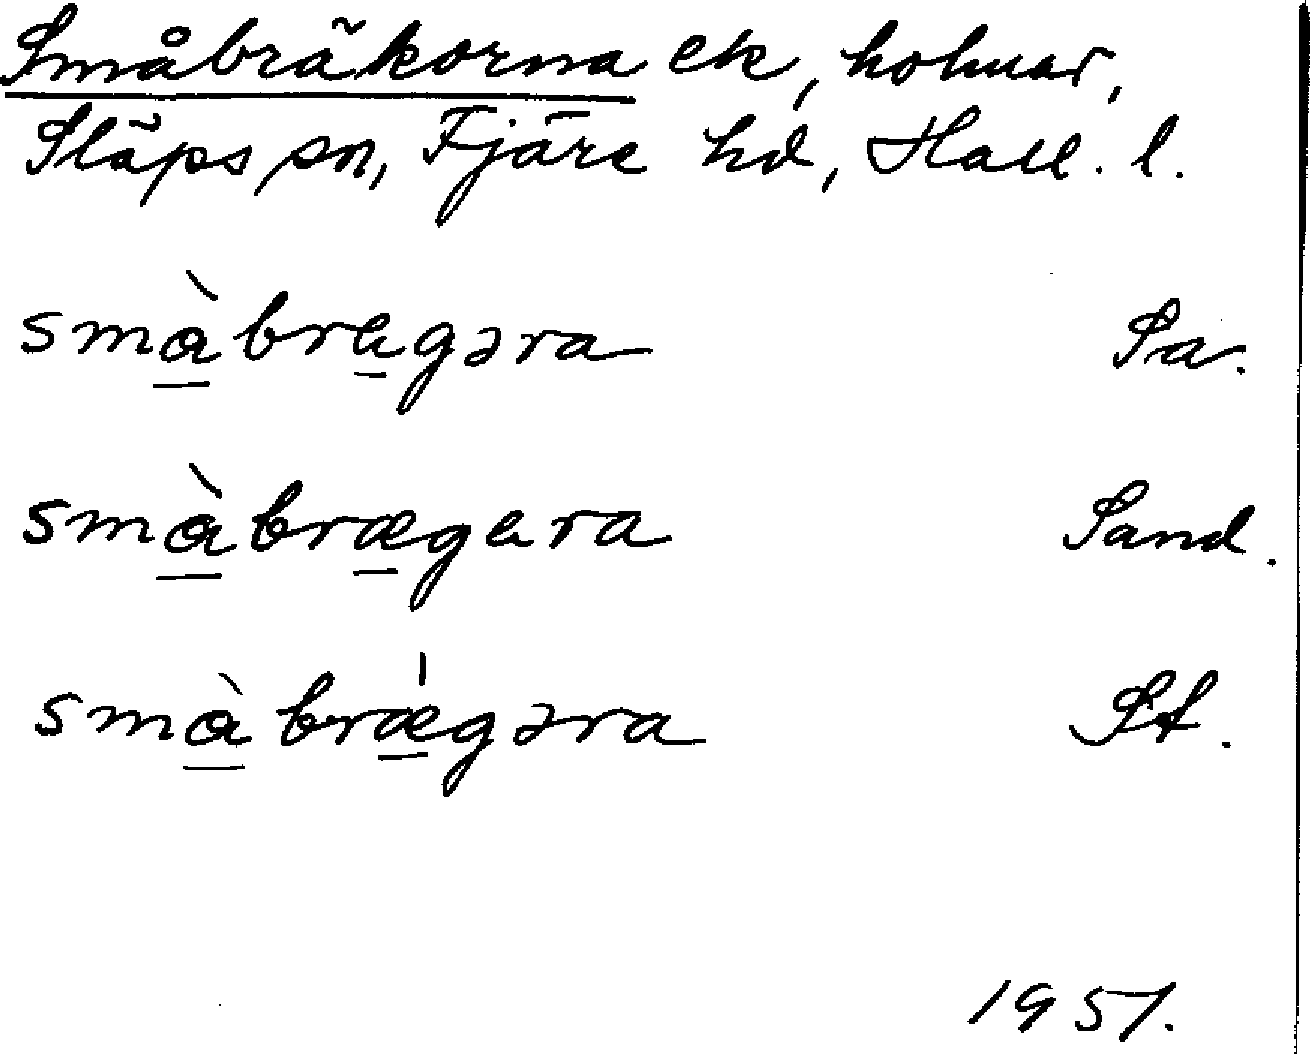 Småbräkorna ek, holmar,
Släps sn, Fjäre hd, Hall. l.
smàbrægəra Sa.
smàbrægera Sand.
smàbrǽgəra St.
1957.